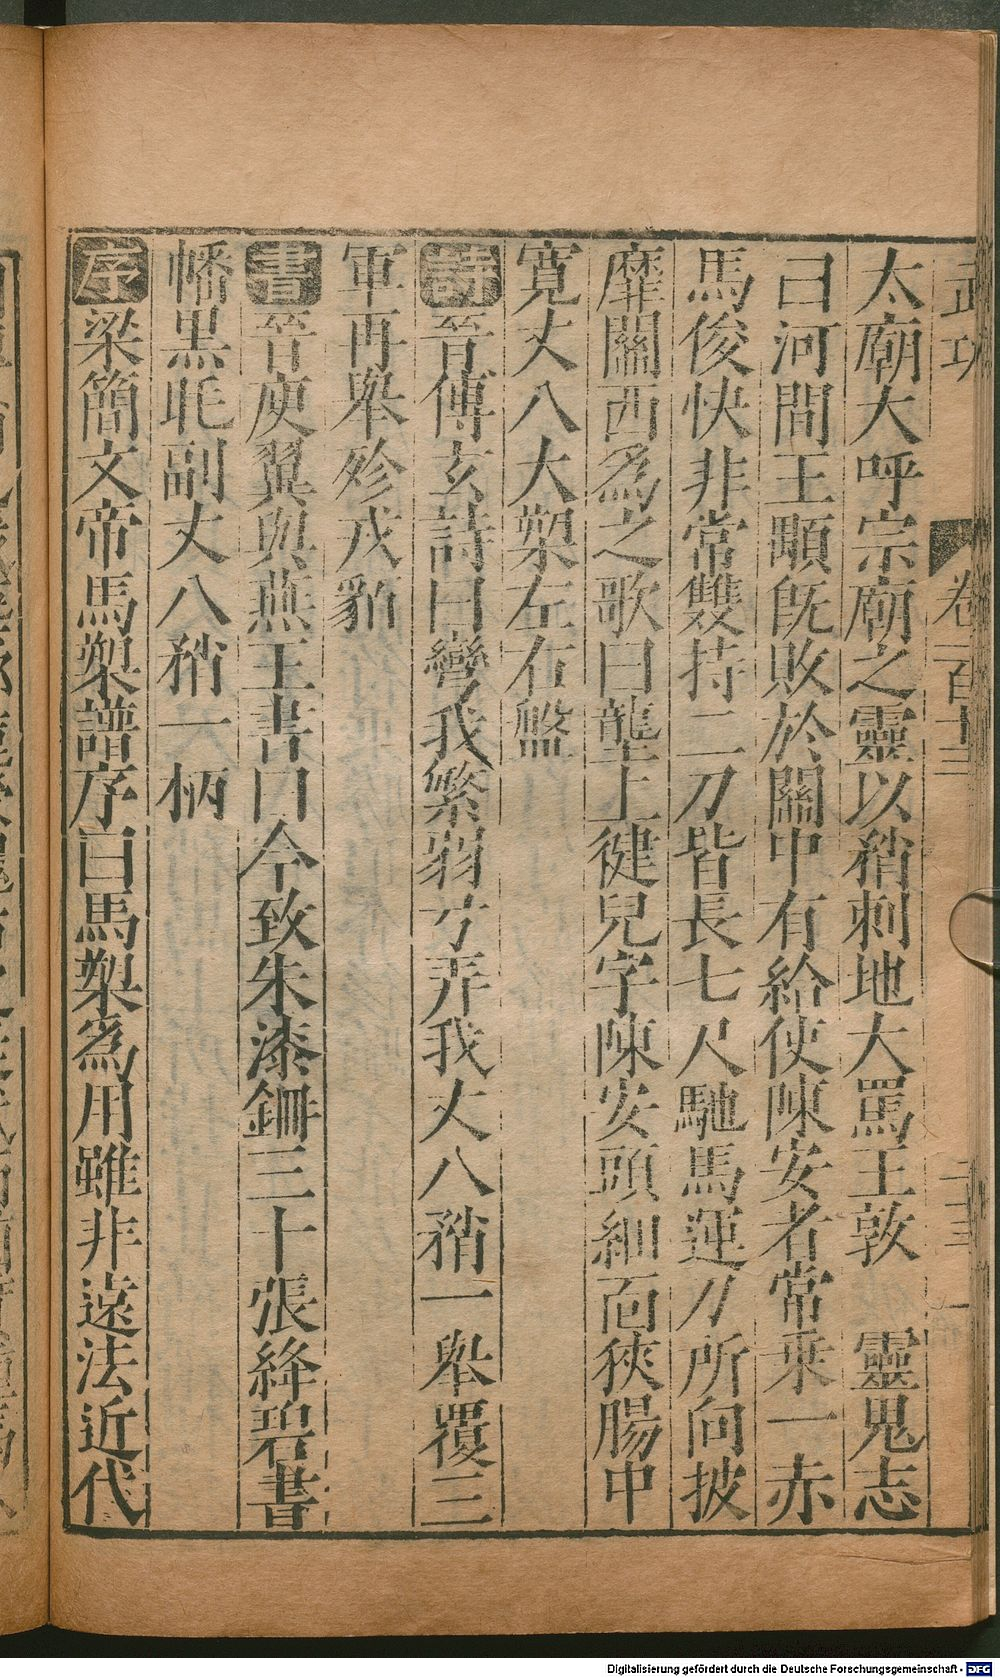 武功
卷一百十三
太廟大呼宗廟之靈以矟刺地大罵王敦　靈鬼志
曰河間王顒旣敗於關中有給使陳安者常乘一赤
馬俊快非常雙持二刀皆長七尺馳馬運刀所向披
靡關西爲之歌曰壟上健兒字陳安頭細面狹腸中
寬丈八大槊左右盤
詩晉傅玄詩曰彎我繁弱弓弄我丈八矟一舉覆三
軍再舉殄戎貊
書晉庾翼與燕王書曰今致朱漆鉀三十張絳碧書
幡黑毦副丈八矟一柄
序梁簡文帝馬槊譜序曰馬槊爲用雖非遠法近代
Digitalisierung gefördert durch die Deutsche Forschungsgemeinschaft - DFG